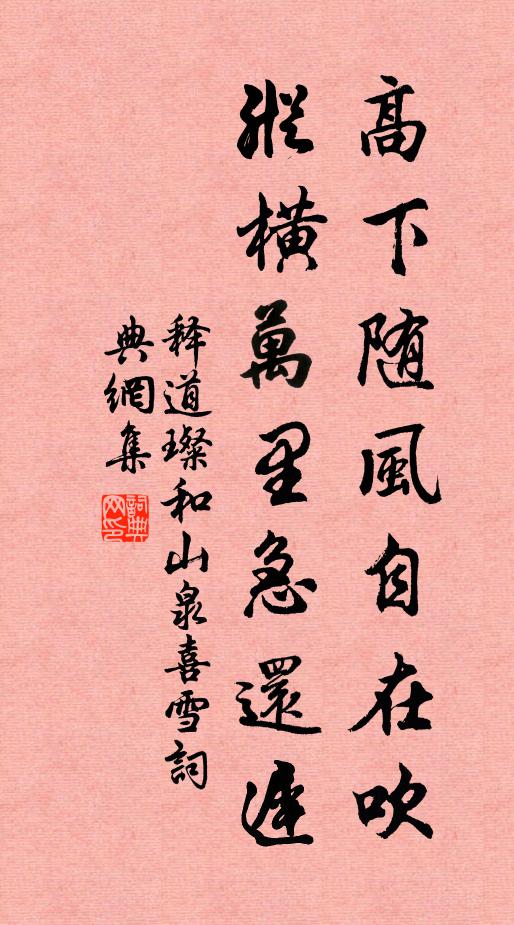 高下随風自在吹
縱橫萬里急還遲
释道璨和山泉喜雪詞
典網集
詞典网印